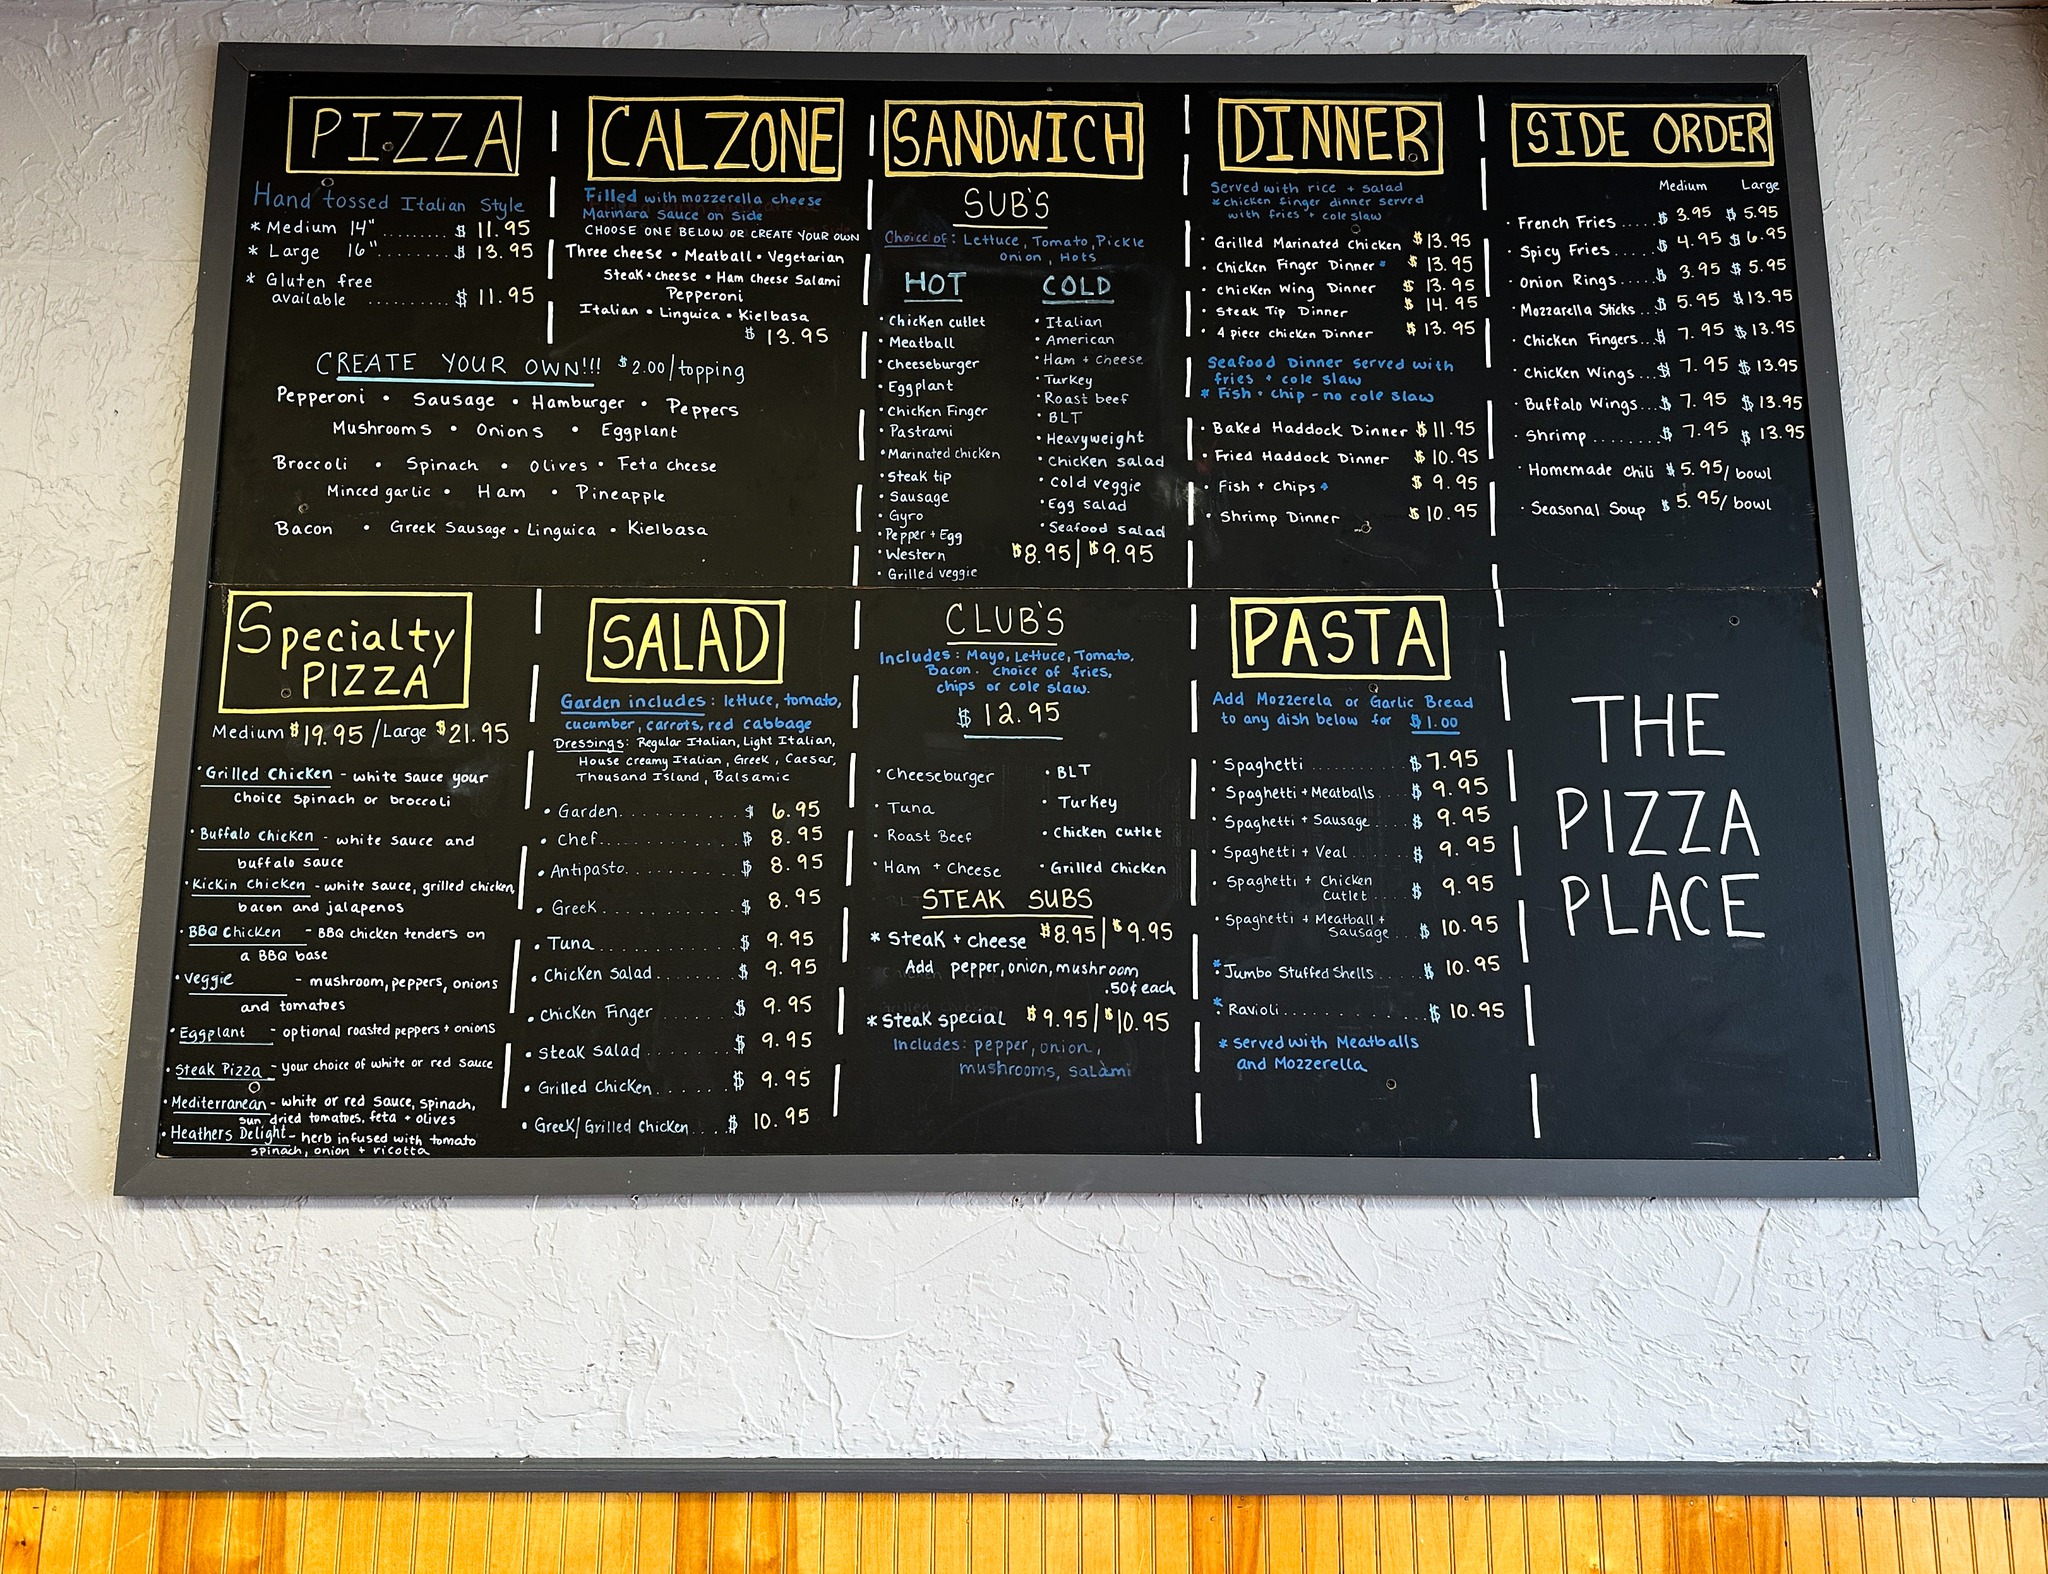 PIZZA
Hand tossed Italian Style
* Medium 14" ........ $ 11.95
* Large 16" ......... $ 13.95
* Gluten free
available .......... $ 11.95
CALZONE
Filled with mozzerella cheese
Marinara sauce on side
CHOOSE ONE BELOW OR CREATE YOUR OWN
Three cheese • Meatball • Vegetarian
Steak + cheese • Ham cheese Salami
Pepperoni
Italian • Linguica • Kielbasa
$ 13.95
CREATE YOUR OWN!!! $2.00/topping
Pepperoni • Sausage • Hamburger • Peppers
Mushrooms • Onions • Eggplant
Broccoli • Spinach • Olives • Feta cheese
Minced garlic • Ham • Pineapple
Bacon • Greek Sausage • Linguica • Kielbasa
SANDWICH
SUB'S
Choice of: Lettuce, Tomato, Pickle
onion, Hots
HOT
• Chicken cutlet
• Meatball
• Cheeseburger
• Eggplant
• Chicken Finger
• Pastrami
• Marinated chicken
• Steak tip
• Sausage
• Gyro
• Pepper + Egg
• Western
• Grilled veggie
COLD
• Italian
• American
• Ham + cheese
• Turkey
• Roast beef
• BLT
• Heavyweight
• Chicken salad
• Cold veggie
• Egg salad
• Seafood salad
$8.95/$9.95
DINNER
Served with rice + salad
* chicken finger dinner served
with fries + cole slaw
• Grilled Marinated chicken $13.95
• Chicken Finger Dinner* $ 13.95
• chicken Wing Dinner $ 13.95
• Steak Tip Dinner $ 14.95
• 4 piece chicken Dinner $ 13.95
Seafood Dinner served with
fries + cole slaw
* Fish + chip - no cole slaw
• Baked Haddock Dinner $11.95
• Fried Haddock Dinner $ 10.95
• Fish + Chips* $ 9.95
• Shrimp Dinner $ 10.95
SIDE ORDER
Medium Large
• French Fries ..... $ 3.95 $ 5.95
• Spicy Fries ..... $ 4.95 $ 6.95
• Onion Rings ..... $ 3.95 $ 5.95
• Mozzarella Sticks ... $ 5.95 $13.95
• Chicken Fingers ... $ 7.95 $13.95
• Chicken Wings ... $ 7.95 $13.95
• Buffalo Wings ... $ 7.95 $13.95
• Shrimp ........ $ 7.95 $ 13.95
• Homemade Chili $5.95/bowl
• Seasonal Soup $5.95/bowl
Specialty
PIZZA
Medium $19.95 / Large $21.95
• Grilled Chicken - white sauce your
choice spinach or broccoli
• Buffalo Chicken - white sauce and
buffalo sauce
• Kickin Chicken - white sauce, grilled chicken,
bacon and jalapenos
• BBQ Chicken - BBQ chicken tenders on
a BBQ base
• Veggie - mushroom, peppers, onions
and tomatoes
• Eggplant - optional roasted peppers + onions
• Steak Pizza - your choice of white or red sauce
• Mediterranean - white or red sauce, spinach,
sun dried tomatoes, feta + olives
• Heathers Delight - herb infused with tomato
spinach, onion + ricotta
SALAD
Garden includes: lettuce, tomato,
cucumber, carrots, red cabbage
Dressings: Regular Italian, Light Italian,
House creamy Italian, Greek, Caesar,
Thousand Island, Balsamic
• Garden.......... $ 6.95
• Chef............ $ 8.95
• Antipasto........ $ 8.95
• Greek........... $ 8.95
• Tuna............ $ 9.95
• Chicken Salad...... $ 9.95
• Chicken Finger ..... $ 9.95
• Steak Salad ....... $ 9.95
• Grilled Chicken ..... $ 9.95
• Greek/Grilled Chicken .... $ 10.95
CLUB'S
Includes: Mayo, Lettuce, Tomato,
Bacon. choice of fries,
chips or cole slaw.
$ 12.95
• Cheeseburger
• Tuna
• Roast Beef
• Ham + Cheese
• BLT
• Turkey
• Chicken cutlet
• Grilled Chicken
STEAK SUBS
* Steak + cheese $8.95/$9.95
Add pepper, onion, mushroom
.50¢ each
* Steak special $9.95/$10.95
Includes: pepper, onion,
mushrooms, salami
PASTA
Add Mozzerela or Garlic Bread
to any dish below for $1.00
• Spaghetti ............ $7.95
• Spaghetti + Meatballs .... $ 9.95
• Spaghetti + Sausage .... $ 9.95
• Spaghetti + Veal ...... $ 9.95
• Spaghetti + Chicken
Cutlet ..... $ 9.95
• Spaghetti + Meatball +
Sausage .... $ 10.95
* Jumbo Stuffed Shells ..... $ 10.95
* Ravioli ............... $ 10.95
* served with Meatballs
and Mozzerella
THE
PIZZA
PLACE